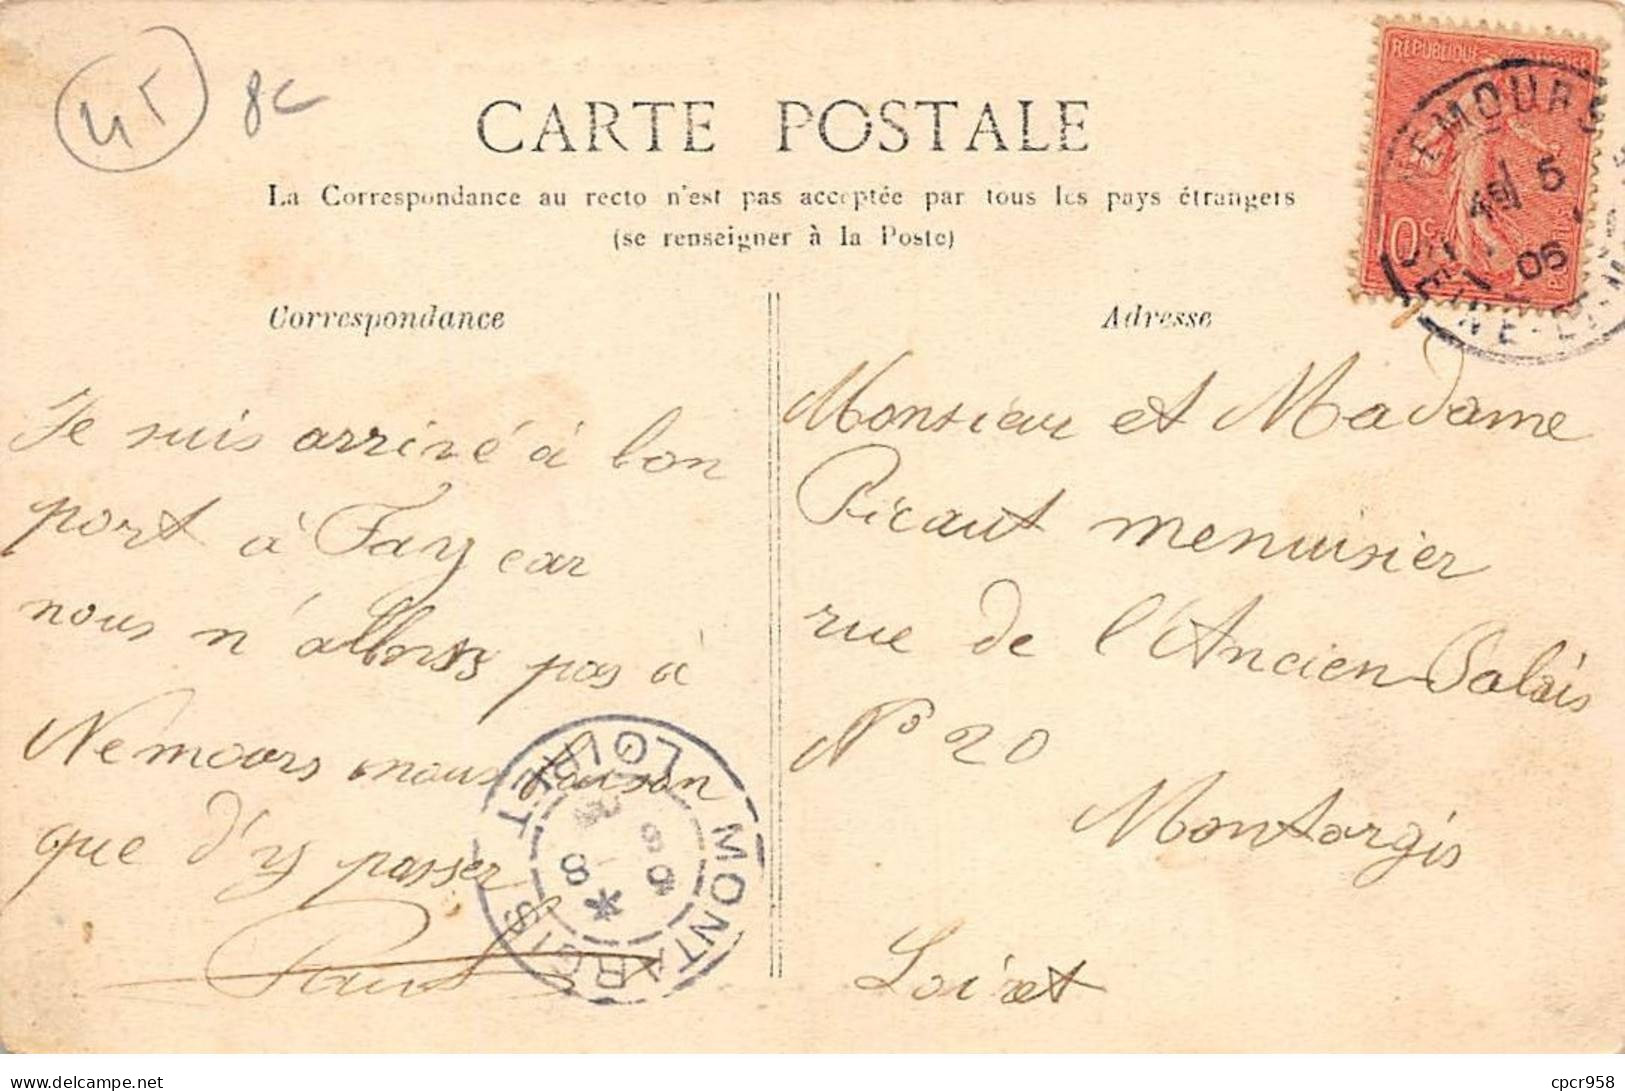 45 8c
CARTE POSTALE
La Correspondance au recto n'est pas acceptée par tous les pays étrangers
(se renseigner à la Poste)
Correspondance
Je suis arrivé à bon
port à Fay car
nous n'allons pas à
Nemours nous
que d'y passer
Adresse
Monsieur et Madame
Picaut menuisier
rue de l'Ancien Palais
N° 20
Montargis
Loiret
RÉPUBLIQUE FRANÇAISE
10c
NEMOURS
5
06
MONTARGIS
LOIRET
www.delcampe.net
cpcr958